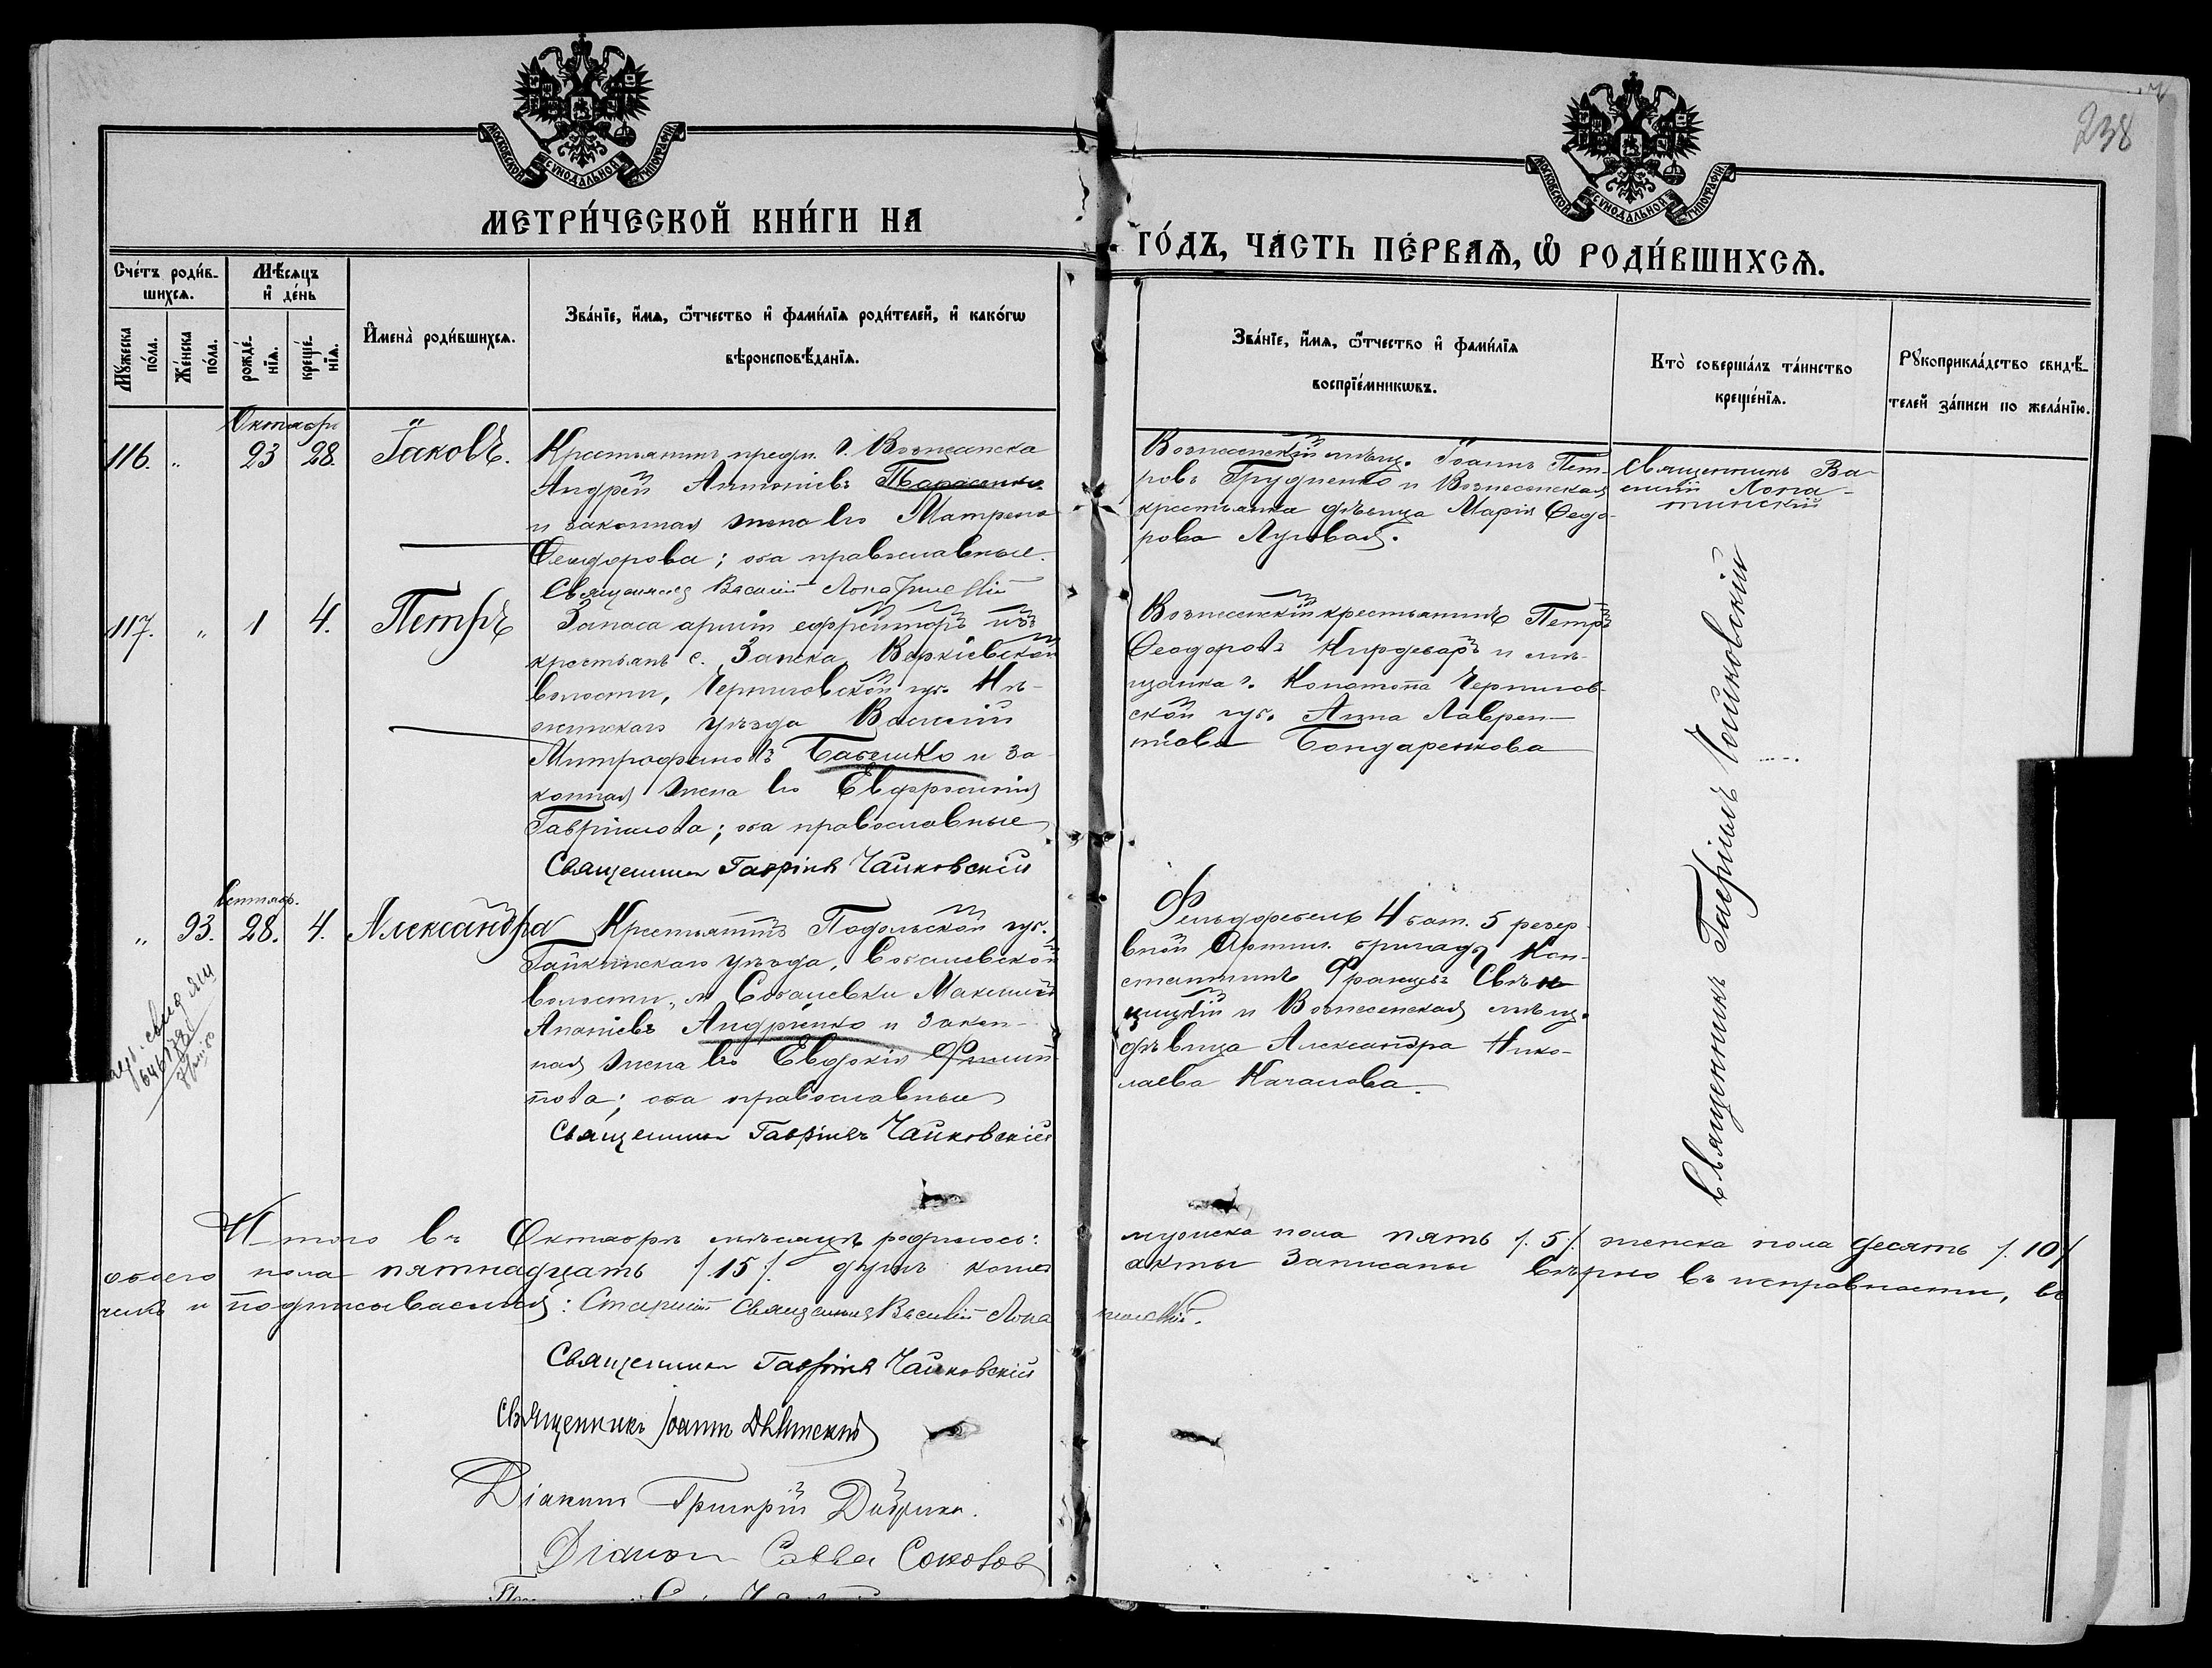 238
МОСКОВСКОЙ СѴНОДАЛЬНОЙ ТИПОГРАФІИ
МОСКОВСКОЙ СѴНОДАЛЬНОЙ ТИПОГРАФІИ
МЕТРИ́ЧЕСКОЙ КНИ́ГИ НА
ГО́ДЪ, ЧА́СТЬ ПЕ́РВАѦ, Ѡ РОДИ́ВШИХСѦ.
Сче́тъ роди́в-
шихсѧ.
Мѣ́сяцъ
и де́нь
Мꙋ́жеска
по́ла.
Же́нска
по́ла.
рожде́-
нїѧ.
креще́-
нїѧ.
И҆мена̀ роди́вшихсѧ.
Зва́нїе, и҆́мѧ, ѻ҆́тчество и҆ фами́лїѧ роди́телей, и҆ како́гѡ
вѣроисповѣ́данїѧ.
Зва́нїе, и҆́мѧ, ѻ҆́тчество и҆ фами́лїѧ
воспрїе́мникѡвъ.
Кто̀ соверша́лъ та́инство
креще́нїѧ.
Рꙋкоприкла́дство свидѣ́-
телей за́писи по жела́нїю.
Октябрь
116. " 23 28. Іаковъ.
Крестьянинъ предм. г. Вознесенска
Андрей Антоніевъ Тарасенко
и законная жена его Матрона
Ѳеодорова; оба православные.
Священникъ Василій Лопатинскій
Вознесенскій мѣщ. Іоаннъ Пет-
ровъ Грудненко и Вознесенская
крестьянка дѣвица Марія Ѳедо-
рова Луговая.
Священникъ Ва-
силій Лопа-
тинскій
117. " 1 4. Петръ
Запаса арміи ефрейторъ изъ
крестьянъ с. Заньки, Веркіевской
волости, Черниговской губ. Нѣ-
жинскаго уѣзда Василій
Митрофановъ Бабешко и за-
конная жена его Евфросинія
Гавріилова; оба православные
Священникъ Гавріилъ Чайковскій
Вознесенскій крестьянинъ Петръ
Ѳеодоровъ Кирдеваръ и мѣ-
щанка г. Конотопа Чернигов-
ской губ. Анна Лаврен-
тіева Бондаренкова
Священникъ Гавріилъ Чайковскій
Сентябр.
" 93. 28. 4. Александра
Крестьянинъ Подольской губ.
Гайсинскаго уѣзда, Соболевской
волости, м. Соболевки Максимъ
Ананіевъ Андріенко и закон-
ная жена его Евдокія Филип-
пова; оба православные
Священникъ Гавріилъ Чайковскій
Фельдфебель 4 бат. 5 резер-
вной Артил. бригады Кон-
стантинъ Францевъ
и Вознесенская мѣщ.
дѣвица Александра Нико-
лаева Качалова.
Итого въ Октябрѣ мѣсяцѣ родилось: мужеска пола пять /.5/. женска пола десять /.10/
обоего пола пятнадцать /.15/. душъ акты записаны вѣрно въ исправности, въ
чемъ и подписываемся: Старшій Священникъ Василій Лопатинскій.
Священникъ Гавріилъ Чайковскій
Священникъ Іоаннъ
Діаконъ Григорій
Діаконъ Савва Соколов